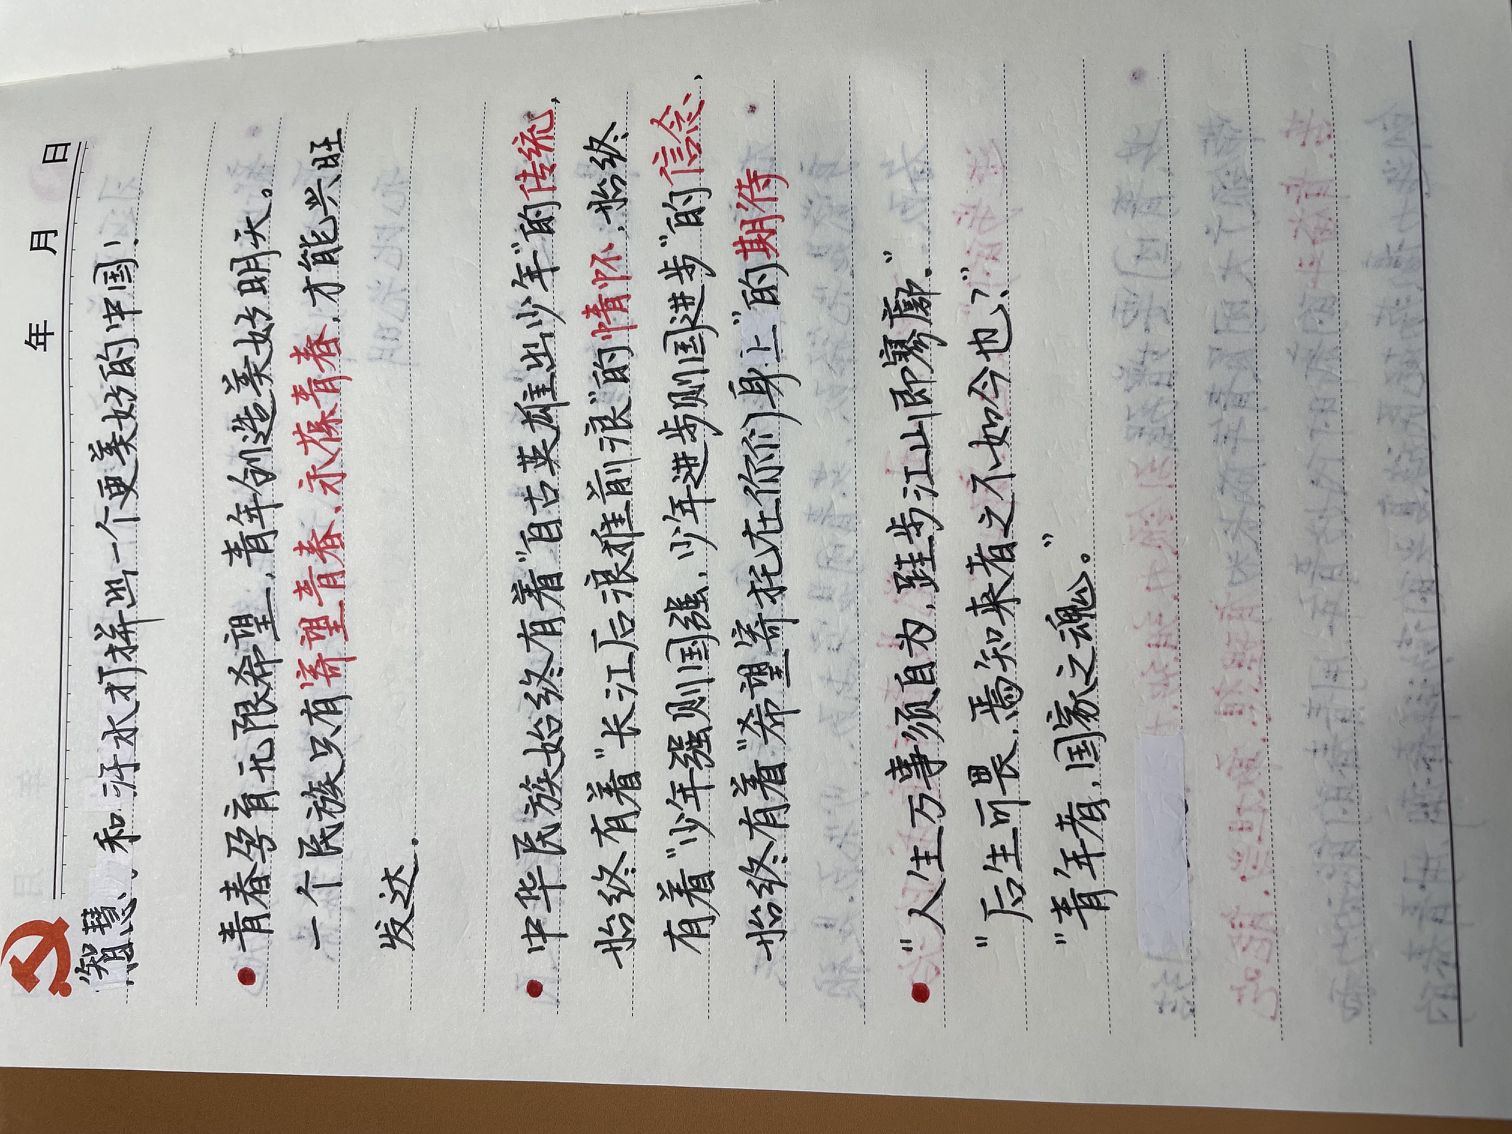 年 月 日
智慧和汗水打拼出一个更美好的中国!
青春孕育无限希望,青年创造美好明天。
一个民族只有寄望青春、永葆青春,才能兴旺
发达.
中华民族始终有着"自古英雄出少年"的传统,
始终有着"长江后浪推前浪"的情怀,始终
有着"少年强则国强,少年进步则国进步"的信念,
始终有着"希望寄托在你们身上"的期待
"人生万事须自为,跬步江山即寥廓."
"后生可畏,焉知来者之不如今也?"
"青年者,国家之魂。"